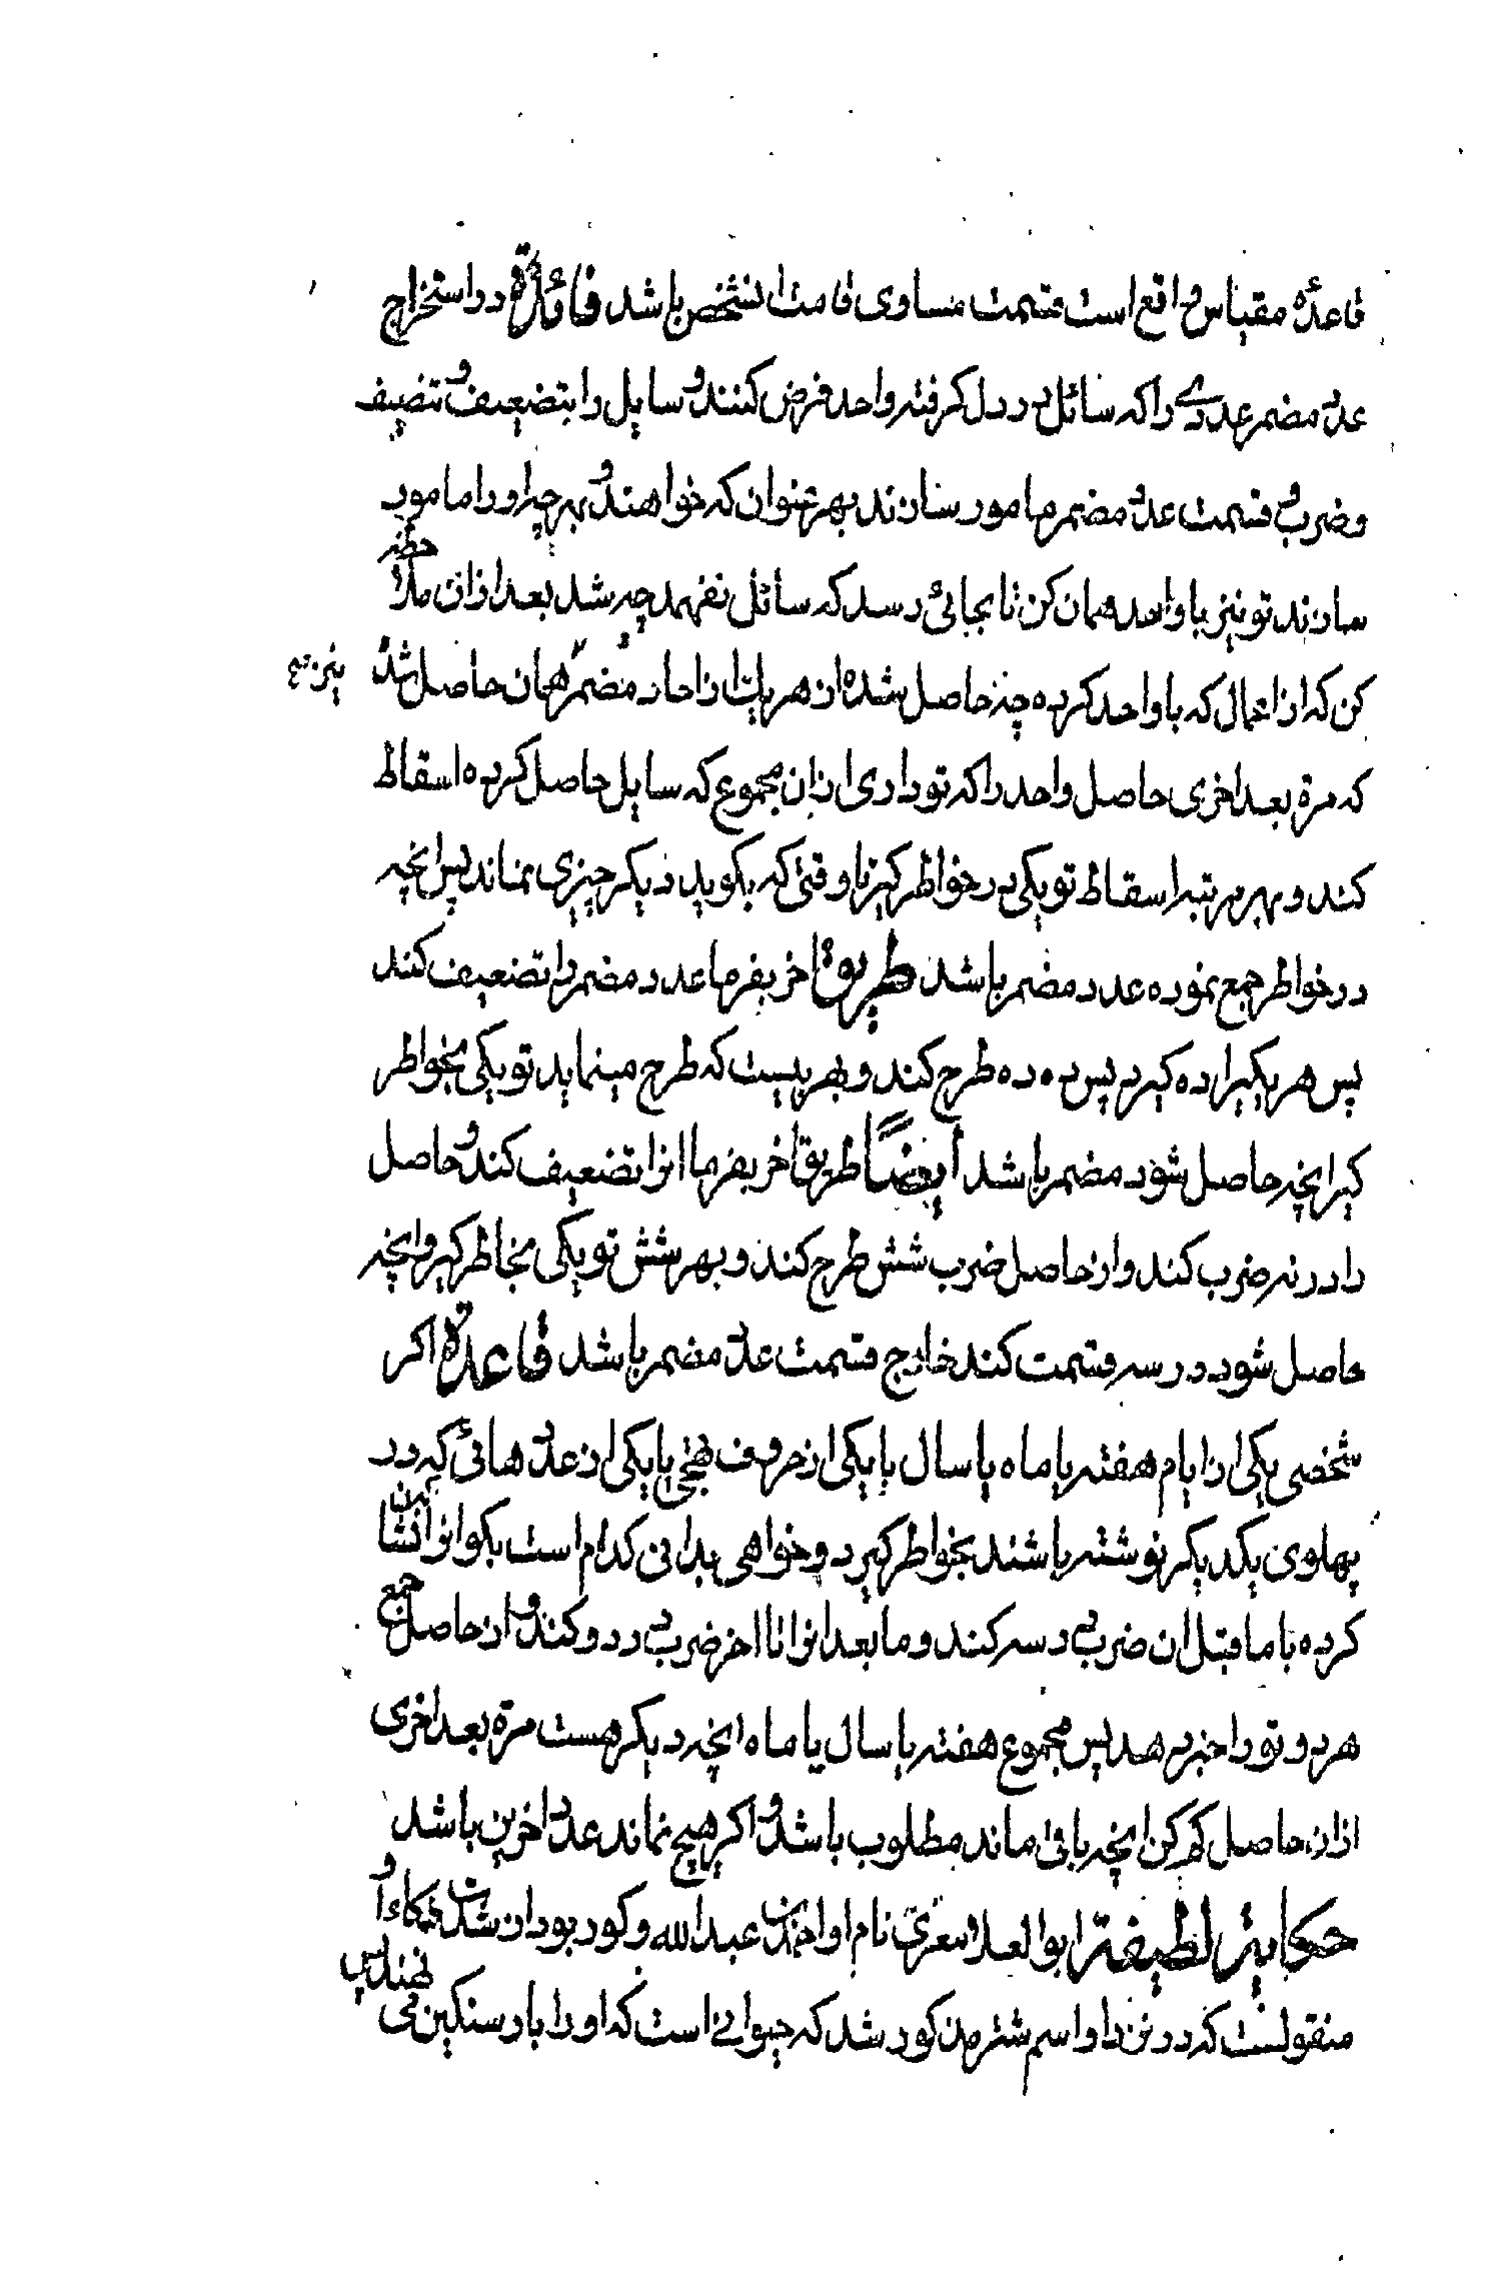 قاعدهٔ مقیاس واقع است قسمت مساوی قامت انشخص باشد فائدة در استخراج
عدد مضمر عددی را که سائل در دل کرفته واحد فرض کنند و سایل را بتضعیف و تنصیف
و ضرب و قسمت عدد مضمر مامور سازند بهر عنوان که خواهند و بهرچه او را مامور
سازند تو نیز با واحد همان کن تا بجائی رسد که سائل نفهمد چه شد بعد از ان ملاحظه
کن که از اعمال که با واحد کرده چند حاصل شده از هر یک از احاد مضمر همان حاصل شد
که مرة بعد اخری حاصل واحد را که تو داری از ان مجموع که سایل حاصل کرده اسقاط
کند و بهر مرتبه اسقاط تو یکی در خواطر کیر تا وقتی که بکوید دیکر چیزی نماند پس انچه
در خواطر جمع نموده عدد مضمر باشد طریق اخر بفرما عدد مضمر را تضعیف کند
پس هر یکیرا ده کیرد پس ده ده طرح کند و بهر بیست که طرح مینماید تو یکی بخواطر
کیر انچه حاصل شود مضمر باشد ایضاً طریق اخر بفرما انرا تضعیف کند و حاصل
را در نه ضرب کند و از حاصل ضرب شش طرح کند و بهر شش تو یکی بخاطر کیر و انچه
حاصل شود در سه قسمت کند خارج قسمت عدد مضمر باشد قاعدة اکر
شخصی یکی از ایام هفته یا ماه یا سال یا یکی از حروف تهجی یا یکی از عدد هائی که در
پهلوی یکدیکر نوشته باشند بخواطر کیرد و خواهی بدانی کدام است بکو انرا نشان
کرده با ماقبل ان ضرب در سه کند و مابعد انرا تا اخر ضرب در دو کند و از حاصل جمع
هر دو تو را خبر دهد پس مجموع هفته یا سال یا ماه انچه دیکر هست مرة بعد اخری
از ان حاصل کم کن انچه باقی ماند مطلوب باشد و اکر هیچ نماند عدد اخرین باشد
حکایة لطیفة ابو العلاء معری نام او احمد بن عبد الله و کور بود از شدت ذکاء او
منقولست که در نزد او اسم شتر مذکور شد که حیوانی است که او را بار سنکین می نهند پس